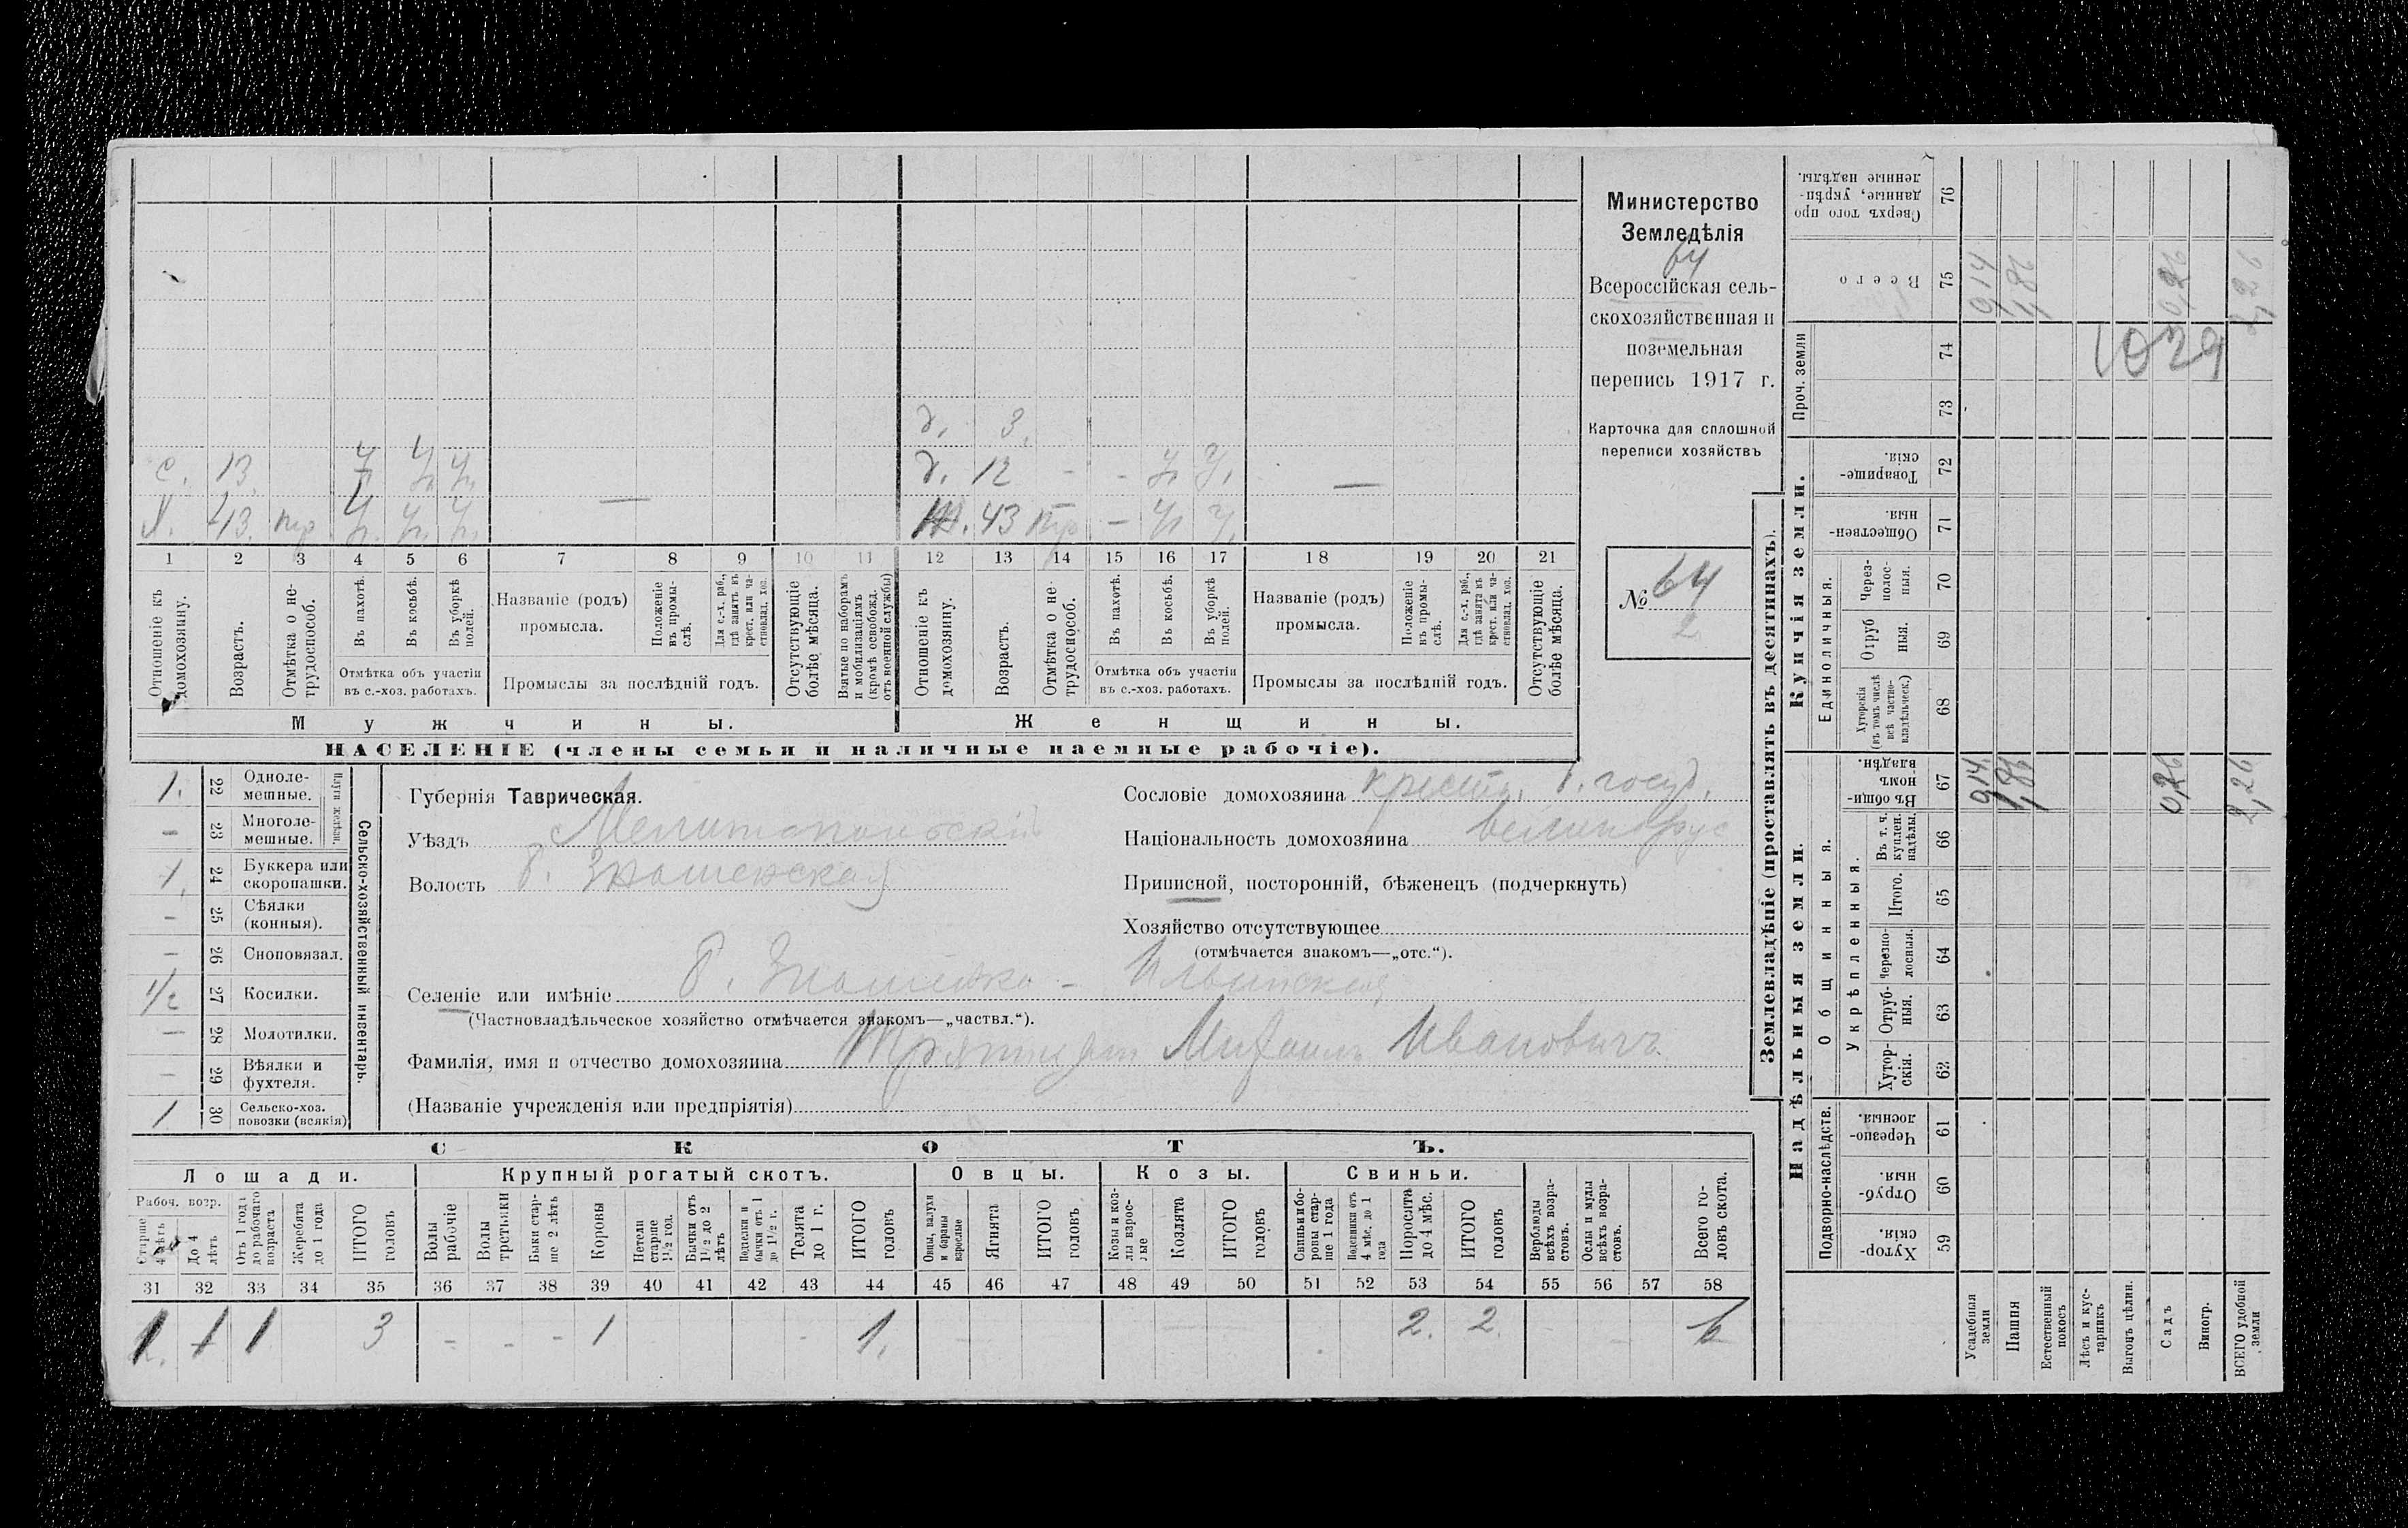 с. 13. ч. ч. ч. — д. 3.
д. 12 - - ч. ч. —
х. 43. пр ч. ч. ч. 43 пр — ч. ч.
1 2 3 4 5 6 7 8 9 10 11 12 13 14 15 16 17 18 19 20 21
Отношеніе къ домохозяину.
Возрастъ.
Отмѣтка о не-
трудоспособ.
Въ пахотѣ.
Въ косьбѣ.
Въ уборкѣ полей.
Отмѣтка объ участіи
въ с.-хоз. работахъ.
Названіе (родъ)
промысла.
Положеніе
въ промы-
слѣ.
Для с.-х. раб.,
гдѣ занятъ въ
крест. или ча-
стновлад. хоз.
Промыслы за послѣдній годъ.
Отсутствующіе
болѣе мѣсяца.
Взятые по наборамъ
и мобилизаціямъ
(кромѣ освобожд.
отъ военной службы)
Отношеніе къ
домохозяину.
Возрастъ.
Отмѣтка о не-
трудоспособ.
Въ пахотѣ.
Въ косьбѣ.
Въ уборкѣ
полей.
Отмѣтка объ участіи
въ с.-хоз. работахъ.
Названіе (родъ)
промысла.
Положеніе
въ промы-
слѣ.
Для с.-х. раб.,
гдѣ занята въ
крест. или ча-
стновлад. хоз.
Промыслы за послѣдній годъ.
Отсутствующіе
болѣе мѣсяца.
Мужчины.
Женщины.
НАСЕЛЕНІЕ (члены семьи и наличные наемные рабочіе).
Министерство
Земледѣлія
64
Всероссійская сель-
скохозяйственная и
поземельная
перепись 1917 г.
Карточка для сплошной
переписи хозяйствъ
№ 64
2
1. 22 Одноле-
мешные.
— 23 Многоле-
мешные.
Плуги желѣзн.
1. 24 Буккера или
скоропашки.
— 25 Сѣялки
(конныя).
— 26 Сноповязал.
1/2 27 Косилки.
— 28 Молотилки.
— 29 Вѣялки и
фухтеля.
1 30 Сельско-хоз.
повозки (всякія)
Сельско-хозяйственный инвентарь.
Губернія Таврическая.
Уѣздъ Мелитопольскій
Волость Б. Знаменская
Сословіе домохозяина крест. б. госуд.
Національность домохозяина великорус
Приписной, посторонній, бѣженецъ (подчеркнуть)
Хозяйство отсутствующее
(отмѣчается знакомъ—„отс.“).
Селеніе или имѣніе Б. Знаменка - Ильинская
(Частновладѣльческое хозяйство отмѣчается знакомъ—„частвл.“).
Фамилія, имя и отчество домохозяина Михаилъ Ивановичъ
(Названіе учрежденія или предпріятія)
СКОТЪ.
Лошади. Крупный рогатый скотъ. Овцы. Козы. Свиньи.
Рабоч. возр.
Старше
4 лѣтъ
До 4
лѣтъ
Отъ 1 года
до рабочаго
возраста
Жеребята
до 1 года
ИТОГО
головъ
Волы
рабочіе
Волы
третьяки
Быки стар-
ше 2 лѣтъ
Коровы
Нетели
старше
1 1/2 год.
Бычки отъ
1 1/2 до 2
лѣтъ
Подтелки и
бычки отъ 1
до 1 1/2 г.
Телята
до 1 г.
ИТОГО
головъ
Овцы, валухи
и бараны
взрослые
Ягнята
ИТОГО
головъ
Козы и коз-
лы взрос-
лые
Козлята
ИТОГО
головъ
Свиньи и бо-
ровы стар-
ше 1 года
Подсвинки отъ
4 мѣс. до 1
года
Поросята
до 4 мѣс.
ИТОГО
головъ
Верблюды
всѣхъ возра-
стовъ.
Ослы и мулы
всѣхъ возра-
стовъ.
Всего го-
ловъ скота.
31 32 33 34 35 36 37 38 39 40 41 42 43 44 45 46 47 48 49 50 51 52 53 54 55 56 57 58
1 1 3 - - - 1 - 1. 2. 2 6
Землевладѣніе (проставлять въ десятинахъ).
Сверхъ того про
данные, укрѣп-
ленные надѣлы. 76
Всего 75 0,14 1,86 0,26 2,26
1029
Проч. земли 74 73
Купчія земли.
Товарище-
скія. 72
Обществен-
ныя. 71
Единоличныя.
Через-
полос-
ныя. 70
Отруб
ныя. 69
Хуторскія
(въ томъ числѣ
всѣ частно-
владѣльческ.) 68
Надѣльныя земли.
Общинныя.
Въ общи-
номъ
владѣн. 67 0,14 1,86 0,26 2,26
Укрѣпленныя.
Въ т. ч.
куплен.
надѣлы. 66
Итого. 65
Черезпо-
лосныя. 64
Отруб-
ныя. 63
Хутор-
скія. 62
Подворно-наслѣдств.
Черезпо-
лосныя. 61
Отруб-
ныя. 60
Хутор-
скія. 59
Усадебныя
земли
Пашня
Естественный
покосъ
Лѣсъ и кус-
тарникъ
Выгонъ цѣлин.
Садъ
Виногр.
ВСЕГО удобной
земли